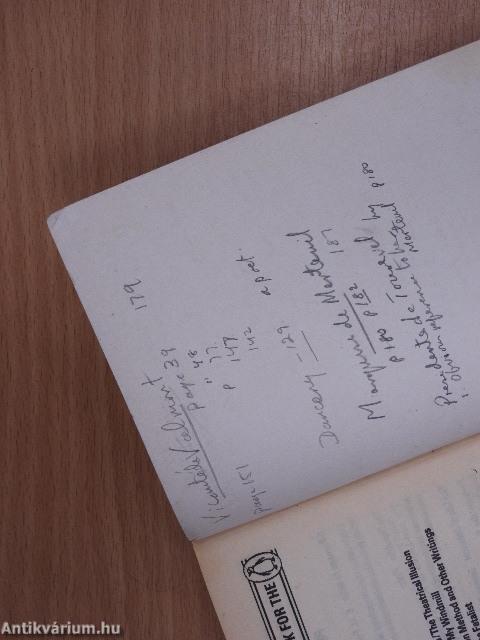 179
Vicomte de Valmont
page 39
" 48
" 17
p 147
142 a poet.
page 151
Danceny - 129.
Marquise de Merteuil
p 180 p 182 187
Presidente de Tourvel by p 180
: Obvious reference to Merteuil
K FOR THE
/The Theatrical Illusion
y Windmill
n Method and Other Writings
Fatalist
Antikvárium.hu